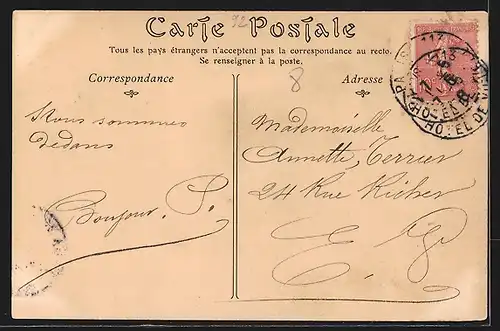 Carte Postale
92
Tous les pays étrangers n'acceptent pas la correspondance au recto.
Se renseigner à la poste.
Correspondance
Adresse
8
Nous sommes
dedans
Bonjour. P.
Mademoiselle
Annette Terrier
24 Rue Richer
E. V.
PARIS
HOTEL DE